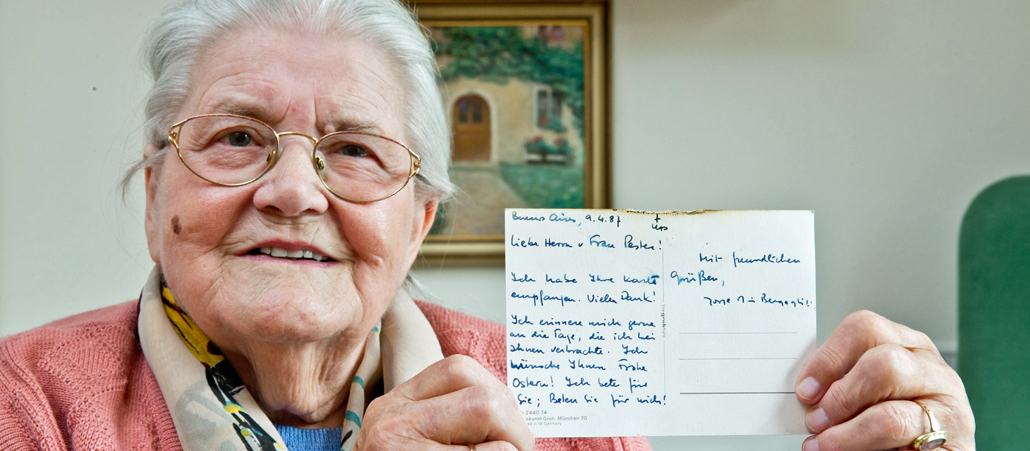 Buenos Aires, 9.4.87
Liebe Herrn u Frau Pester!
Ich habe Ihre Karte
empfangen. Vielen Dank!
Ich erinnere mich gerne
an die Tage, die ich bei
Ihnen verbrachte. Ich
wünsche Ihnen frohe
Ostern! Ich bete für
Sie; Beten Sie für mich!
Mit freundlichen
Grüßen,
Jorge M Bergoglio
2440 74
München 70